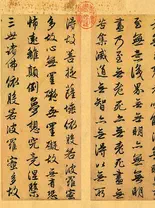 無意識界無無明亦無無明
盡乃至無老死亦無老死盡無
苦集滅道無智亦無得以無所
得故菩提薩埵依般若波羅蜜
多故心無罣礙無罣礙故無有恐
怖遠離顛倒夢想究竟涅槃
三世諸佛依般若波羅蜜多故